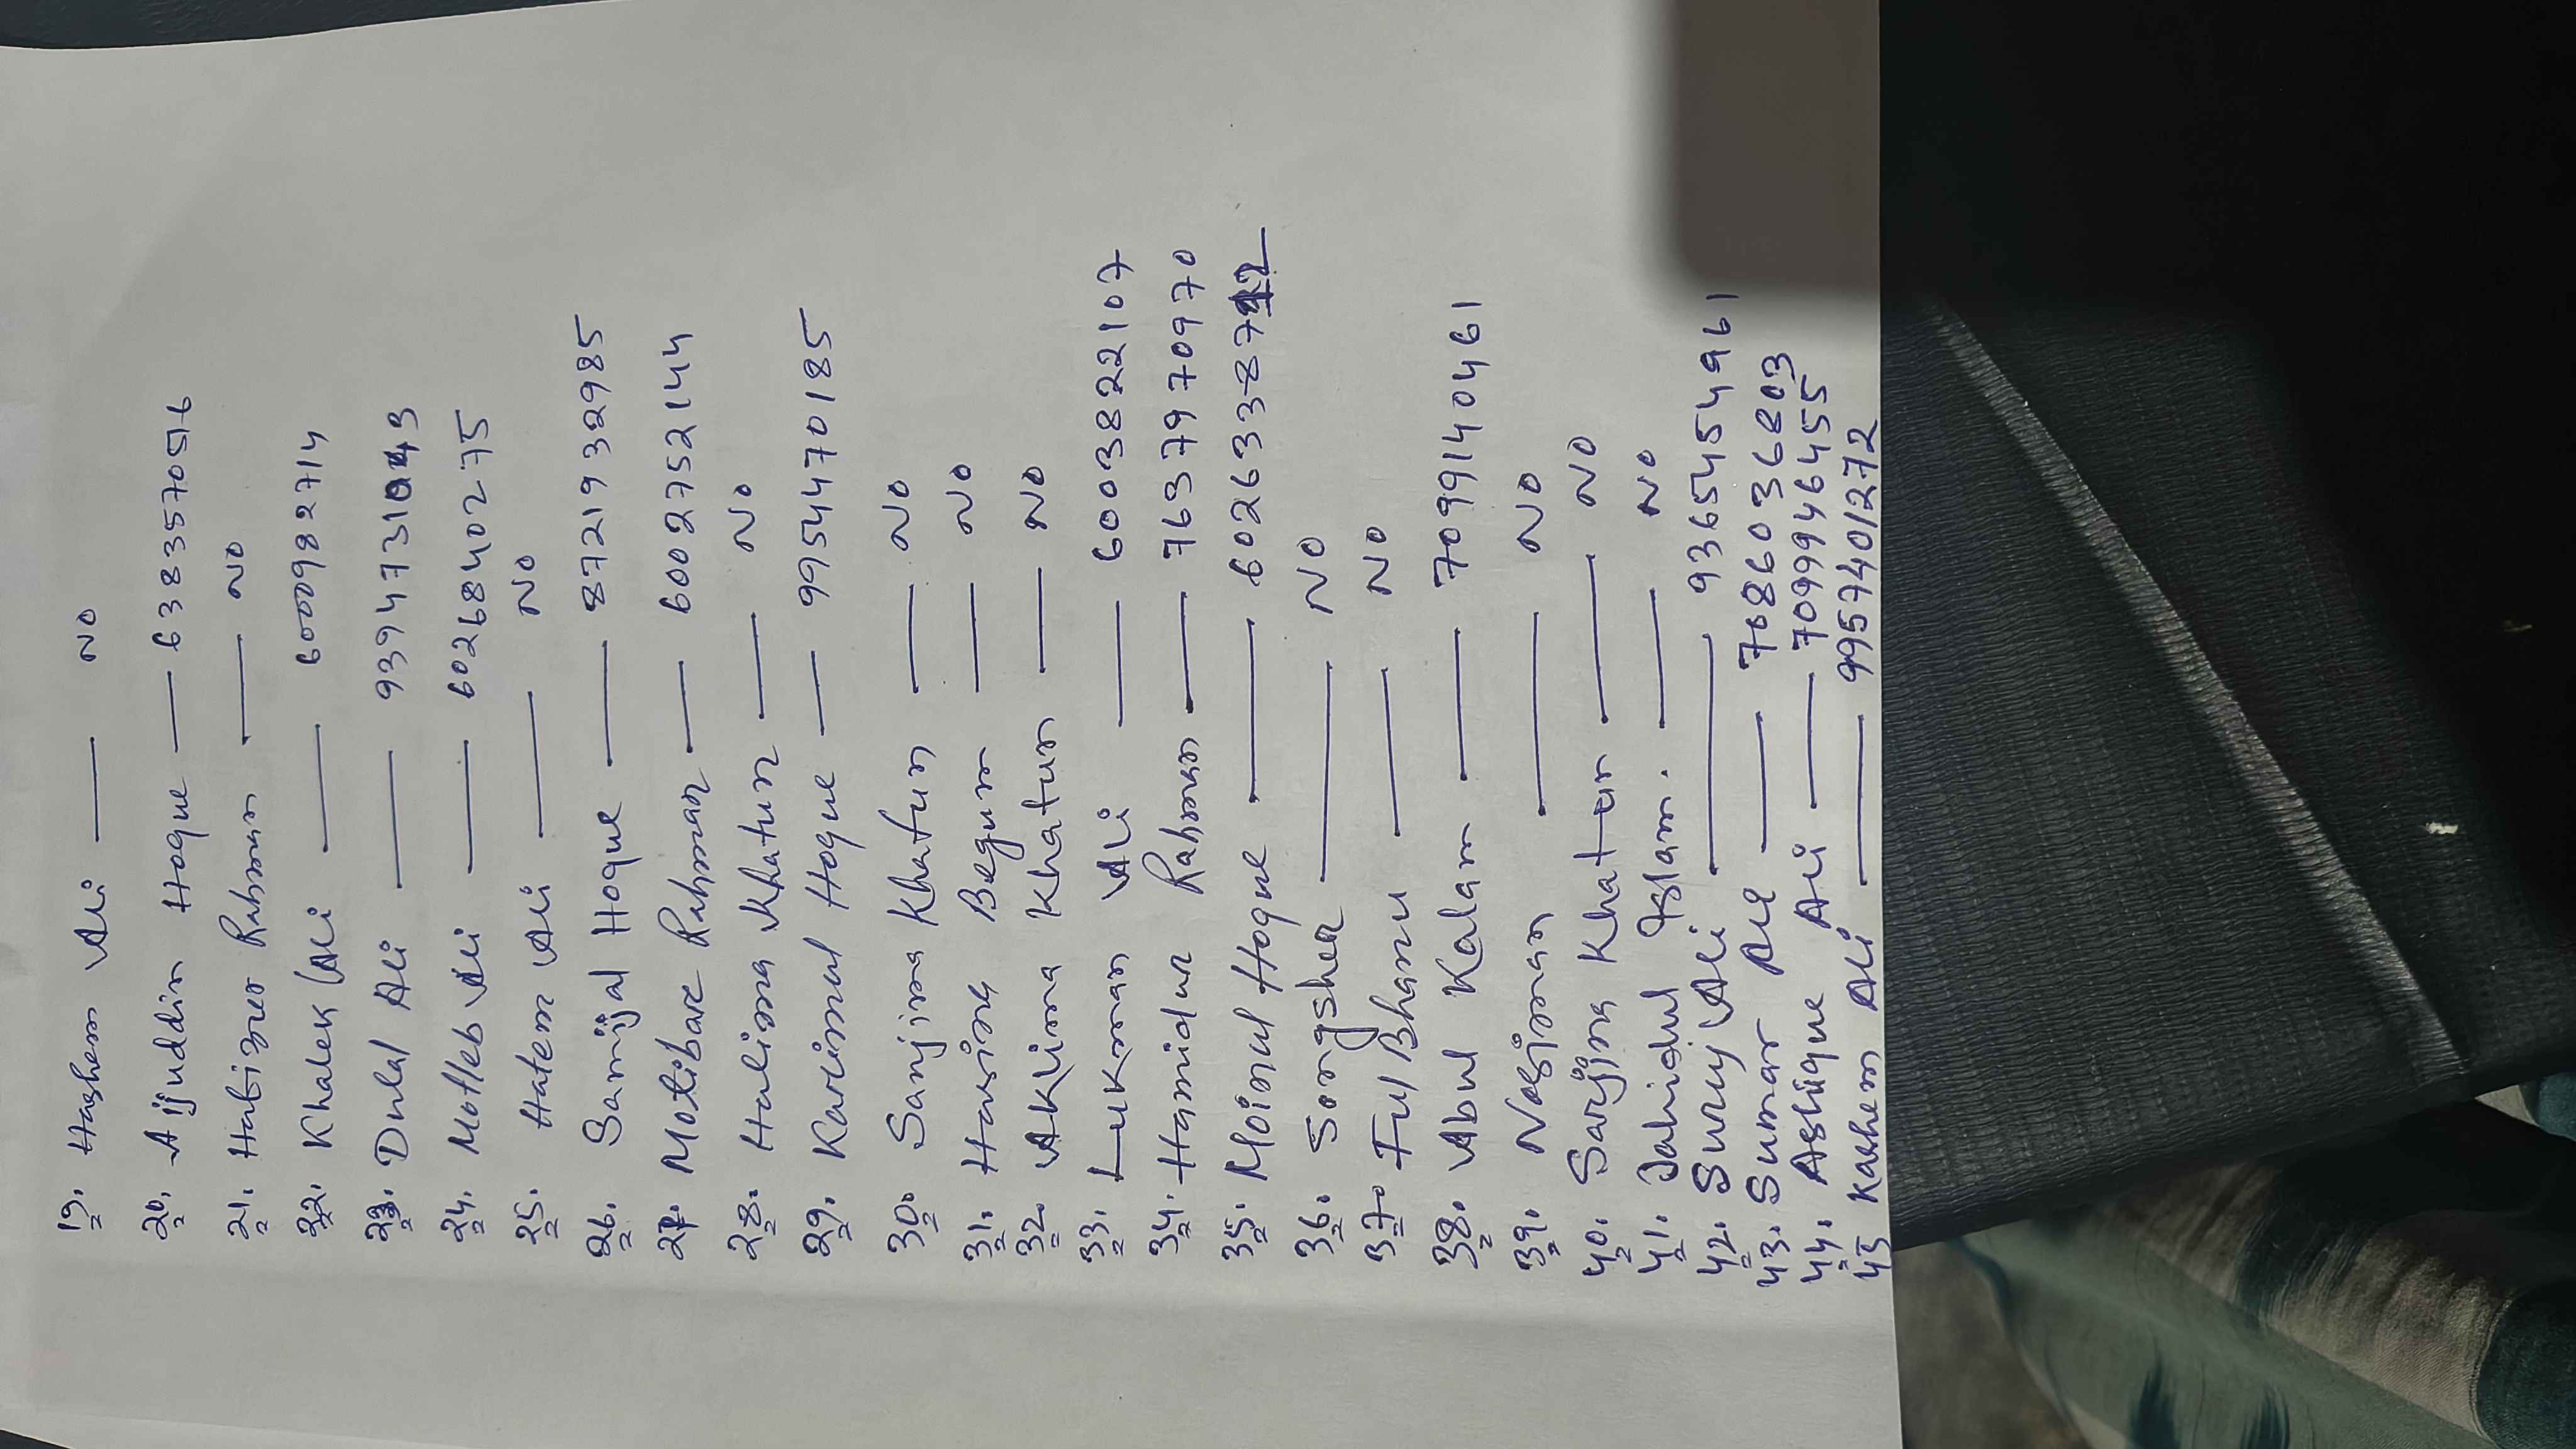 19. Hashem Ali — NO
20. Ajjuddin Hoque — 6383570516
21. Habizur Rahman — NO
22. Khalek Ali — 6000982714
23. Dulal Ali — 9394731043
24. Motleb Ali — 6026840275
25. Hatem Ali — NO
26. Samijal Hoque — 8721932985
27. Motibar Rahman — 6002752144
28. Halima Khatun — NO
29. Karimul Hoque — 9954470185
30. Sanjima Khatun — NO
31. Hasina Begum — NO
32. Aklima Khatun — NO
33. Lukman Ali — 6003822107
34. Hamidur Rahman — 7637970970
35. Moinul Hoque — 6026338712
36. Songsher — NO
37. Ful Bhanu — NO
38. Abul Kalam — 7099140461
39. Nasiman — NO
40. Sarjina Khatun — NO
41. Jahidul Islam. — NO
42. Suruj Ali — 9365454961
43. Sumar Ali — 7086036803
44. Ashique Ali — 7099946455
45 Kashem Ali — 9957401272